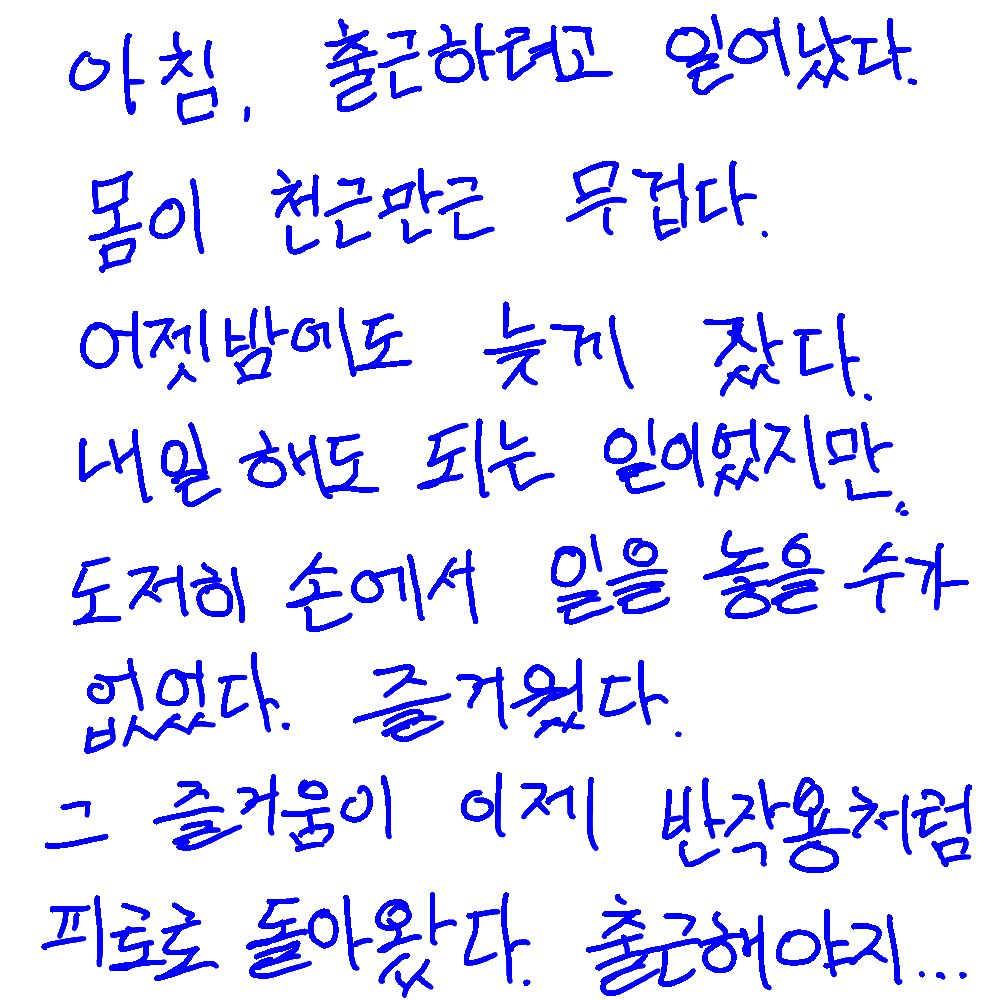 아침, 출근하려고 일어났다.
몸이 천근만근 무겁다.
어젯밤에도 늦게 잤다.
내일 해도 되는 일이었지만,
도저히 손에서 일을 놓을 수가
없었다. 즐거웠다.
그 즐거움이 이제 반작용처럼
피로로 돌아왔다. 출근해야지...